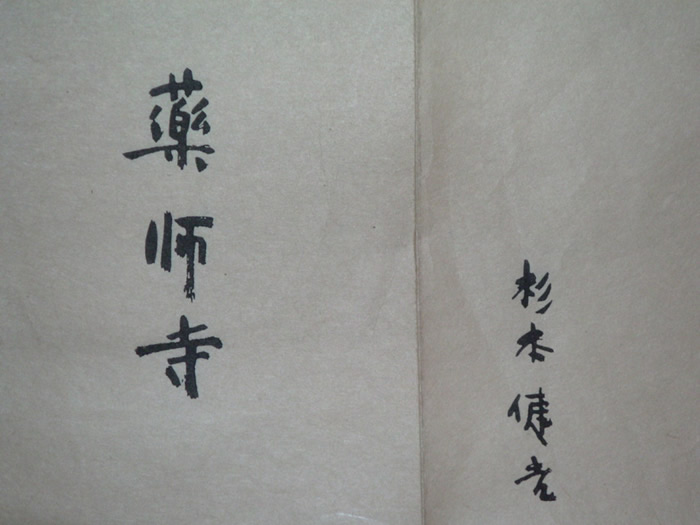 藥师寺
杉本健吉